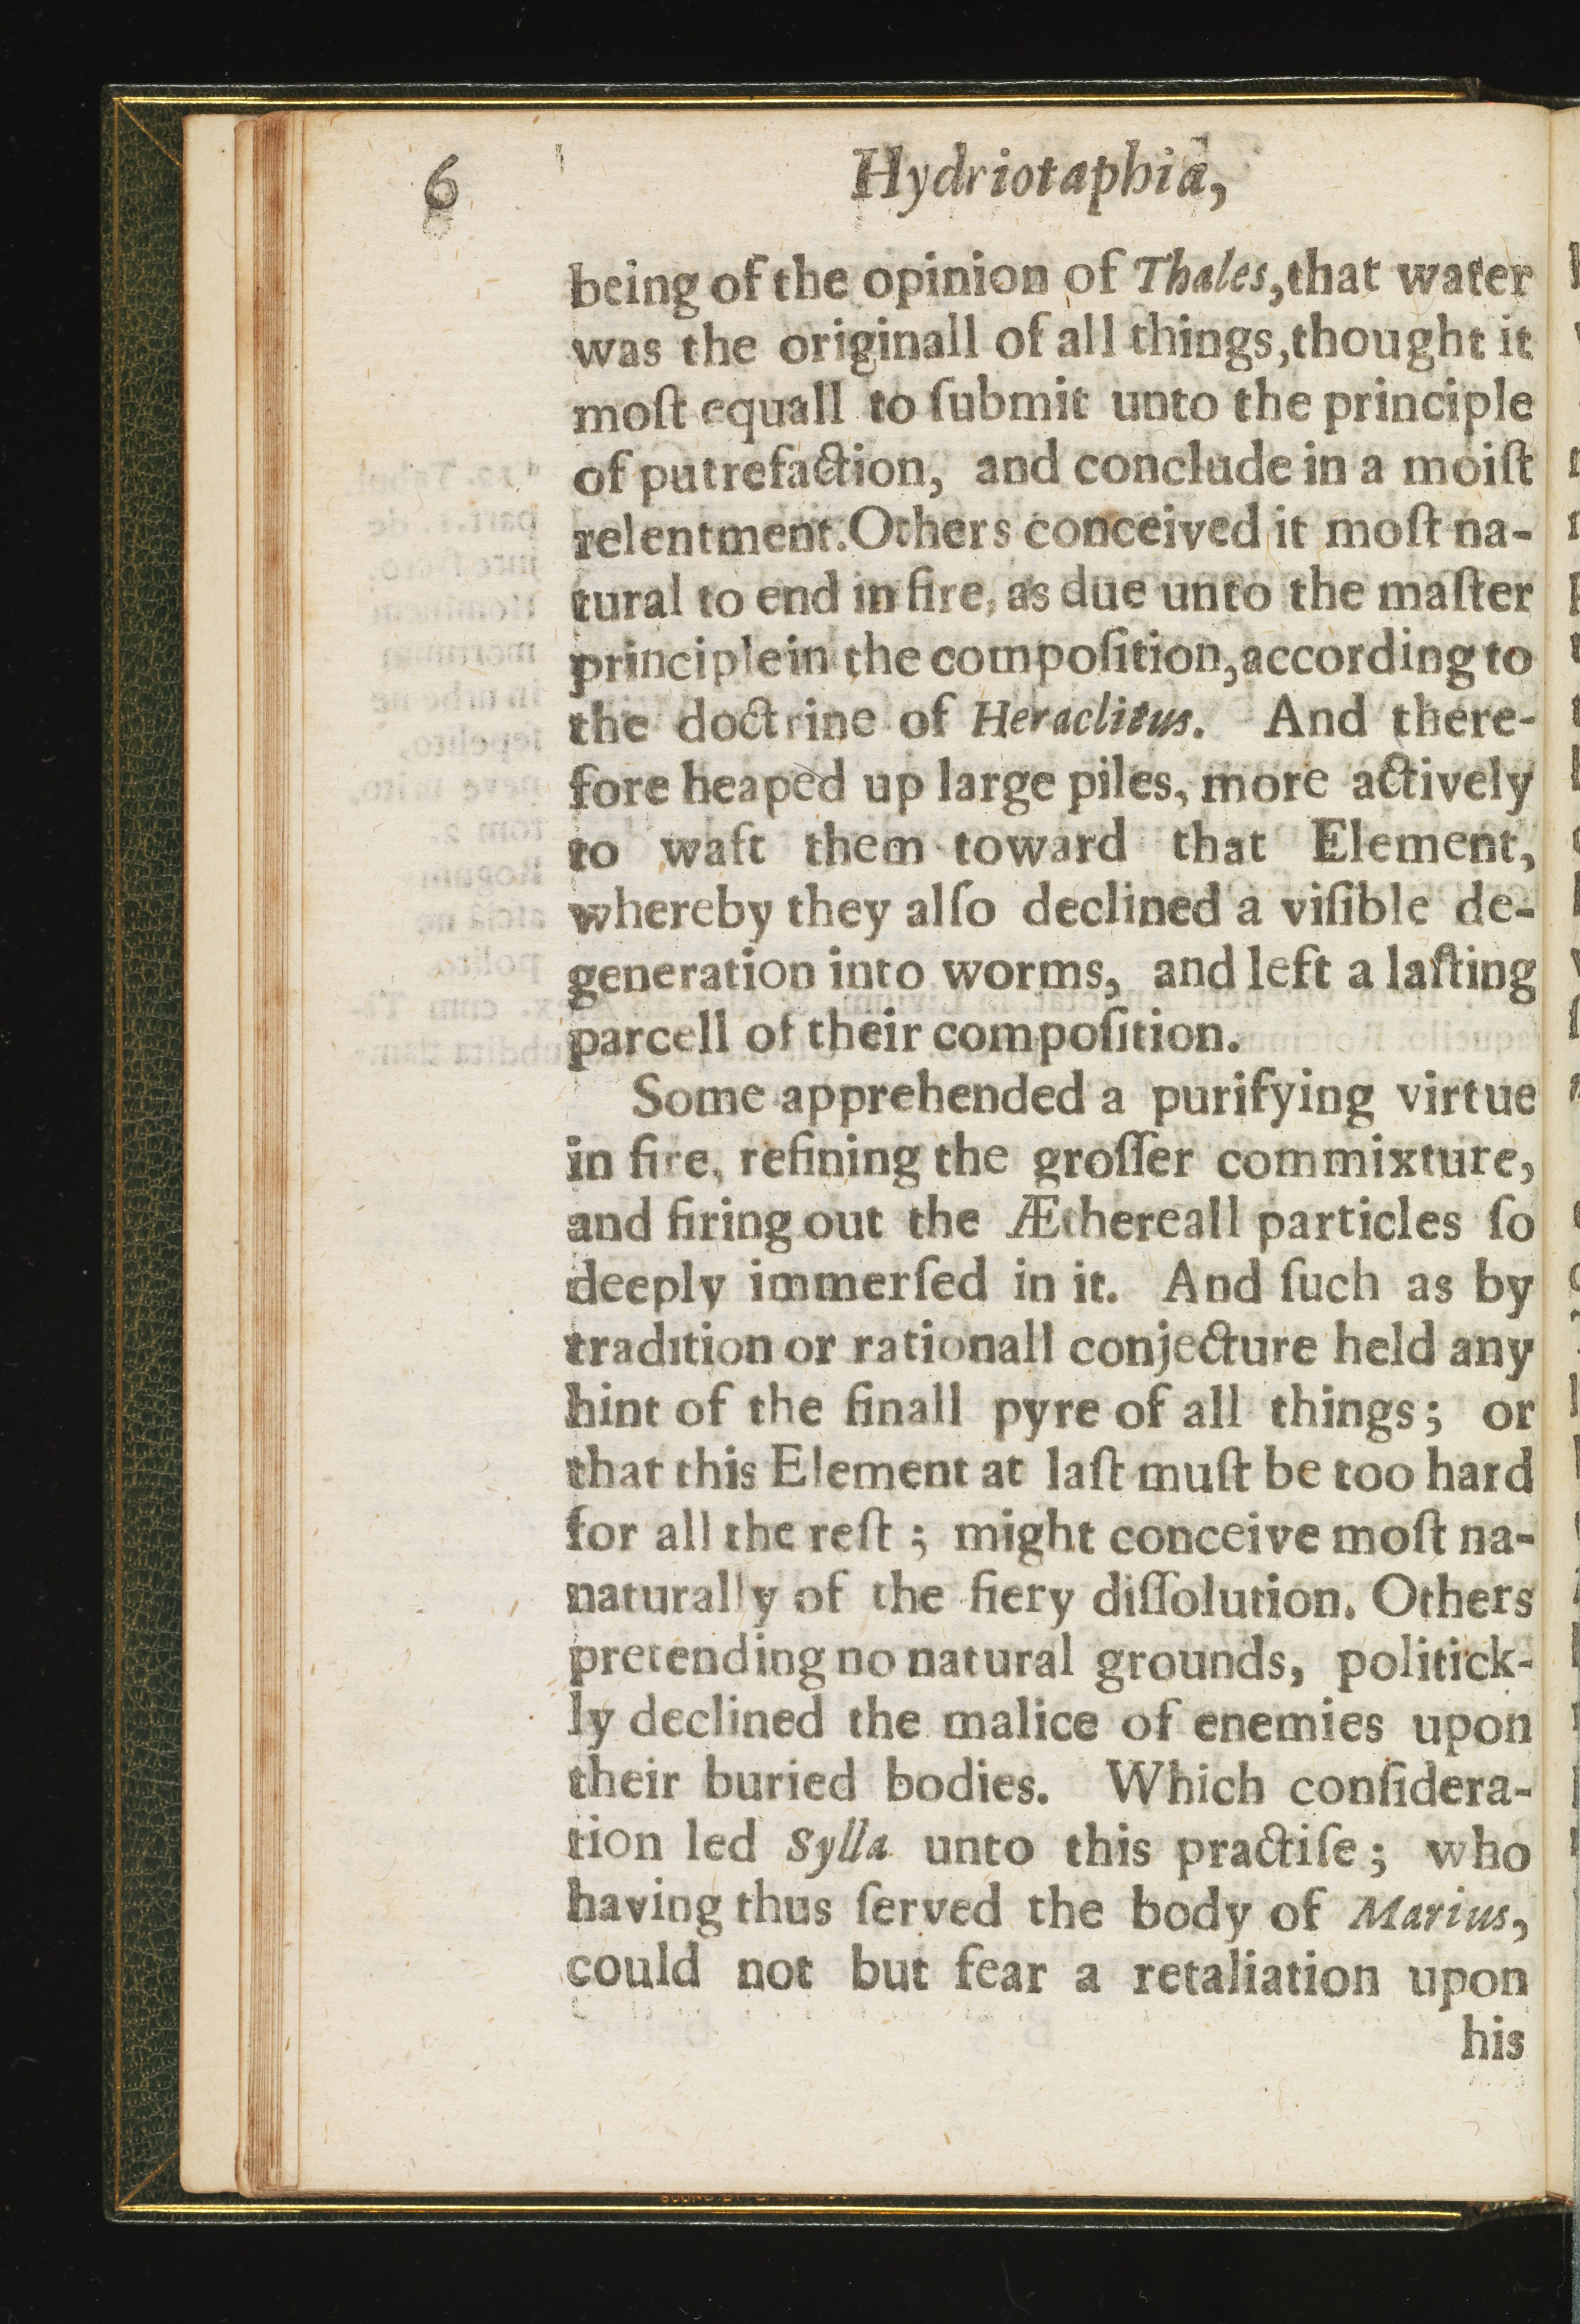 6 Hydriotaphia,
being of the opinion of Thales,that water
was the originall of all things,thought it
moſt equall to ſubmit unto the principle
of putrefaction, and conclude in a moiſt
relentment.Others conceived it moſt na-
tural to end in fire, as due unto the maſter
principle in the compoſition,according to
the doctrine of Heraclitus. And there-
fore heaped up large piles, more actively
to waft them toward that Element,
whereby they alſo declined a viſible de-
generation into worms, and left a laſting
parcell of their compoſition.
Some apprehended a purifying virtue
in fire, refining the groſſer commixture,
and firing out the Æthereall particles ſo
deeply immerſed in it. And ſuch as by
tradition or rationall conjecture held any
hint of the finall pyre of all things; or
that this Element at laſt muſt be too hard
for all the reſt ; might conceive moſt na-
naturally of the fiery diſſolution. Others
pretending no natural grounds, politick-
ly declined the malice of enemies upon
their buried bodies. Which conſidera-
tion led Sylla unto this practiſe; who
having thus ſerved the body of Marius,
could not but fear a retaliation upon
his